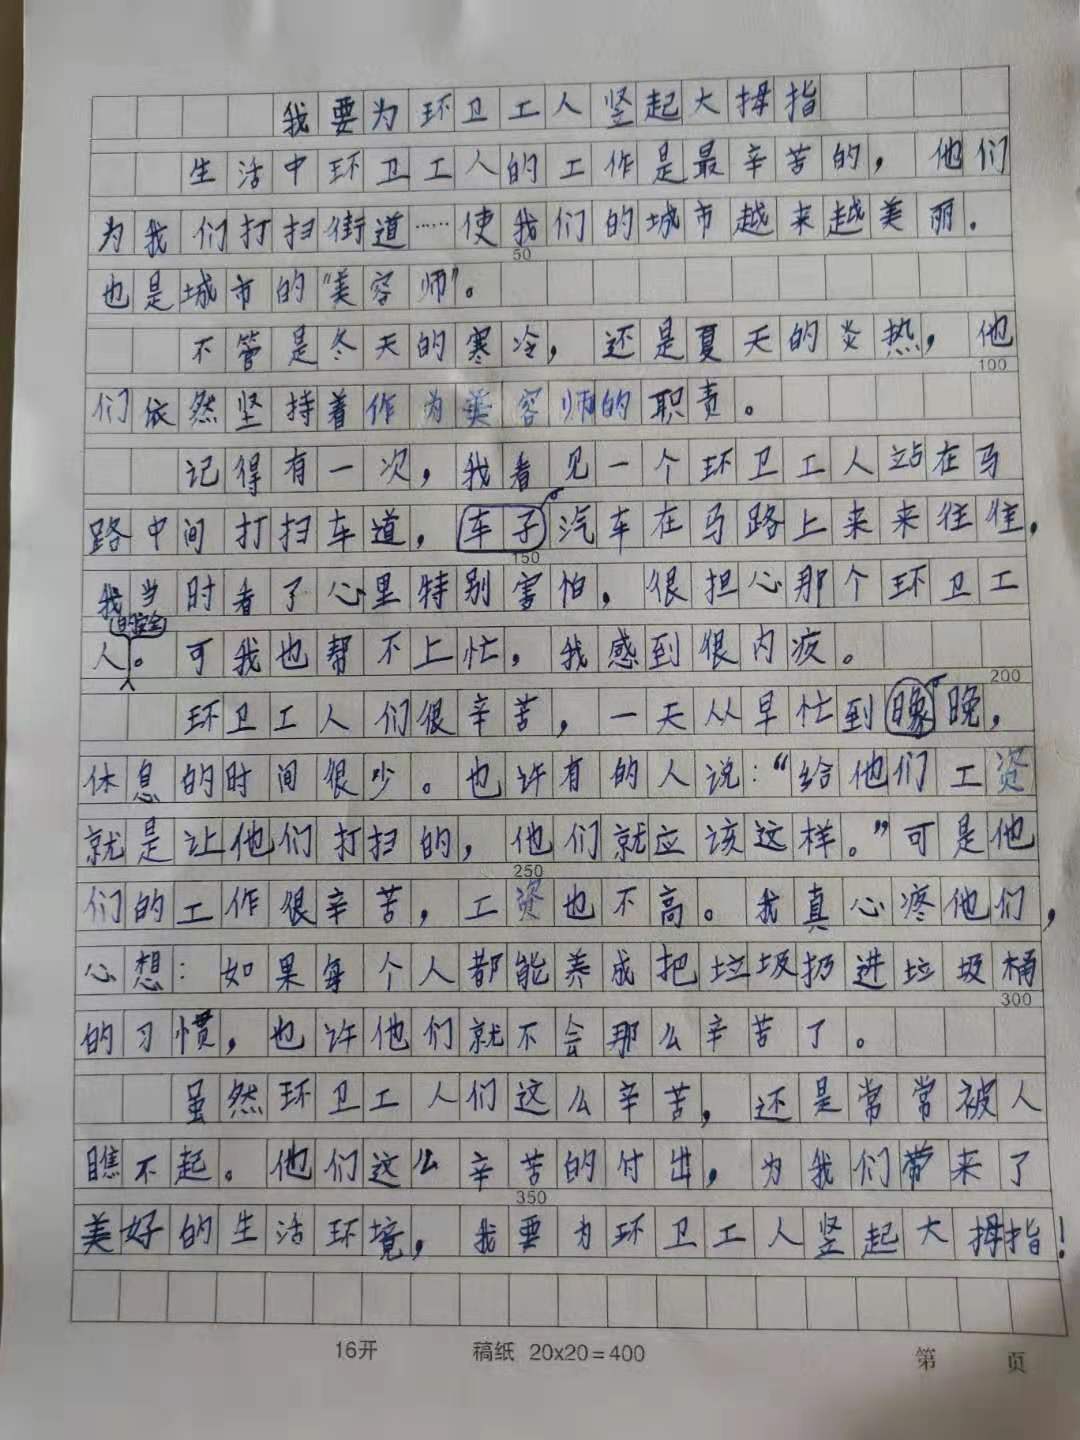 我要为环卫工人竖起大拇指
生活中环卫工人的工作是最辛苦的，他们
为我们打扫街道……使我们的城市越来越美丽．
50
也是城市的“美容师”。
不管是冬天的寒冷，还是夏天的炎热，他
100
们依然坚持着作为美容师的职责。
记得有一次，我看见一个环卫工人站在马
路中间打扫车道，车子汽车在马路上来来往往，
150
我当时看了心里特别害怕，很担心那个环卫工
人的安全。可我也帮不上忙，我感到很内疚。
200
环卫工人们很辛苦，一天从早忙到晚，
休息的时间很少。也许有的人说：“给他们工资
就是让他们打扫的，他们就应该这样。”可是他
250
们的工作很辛苦，工资也不高。我真心疼他们，
心想：如果每个人都能养成把垃圾扔进垃圾桶
300
的习惯，也许他们就不会那么辛苦了。
虽然环卫工人们这么辛苦，还是常常被人
瞧不起。他们这么辛苦的付出，为我们带来了
350
美好的生活环境，我要为环卫工人竖起大拇指！
16开 稿纸 20x20=400 第 页